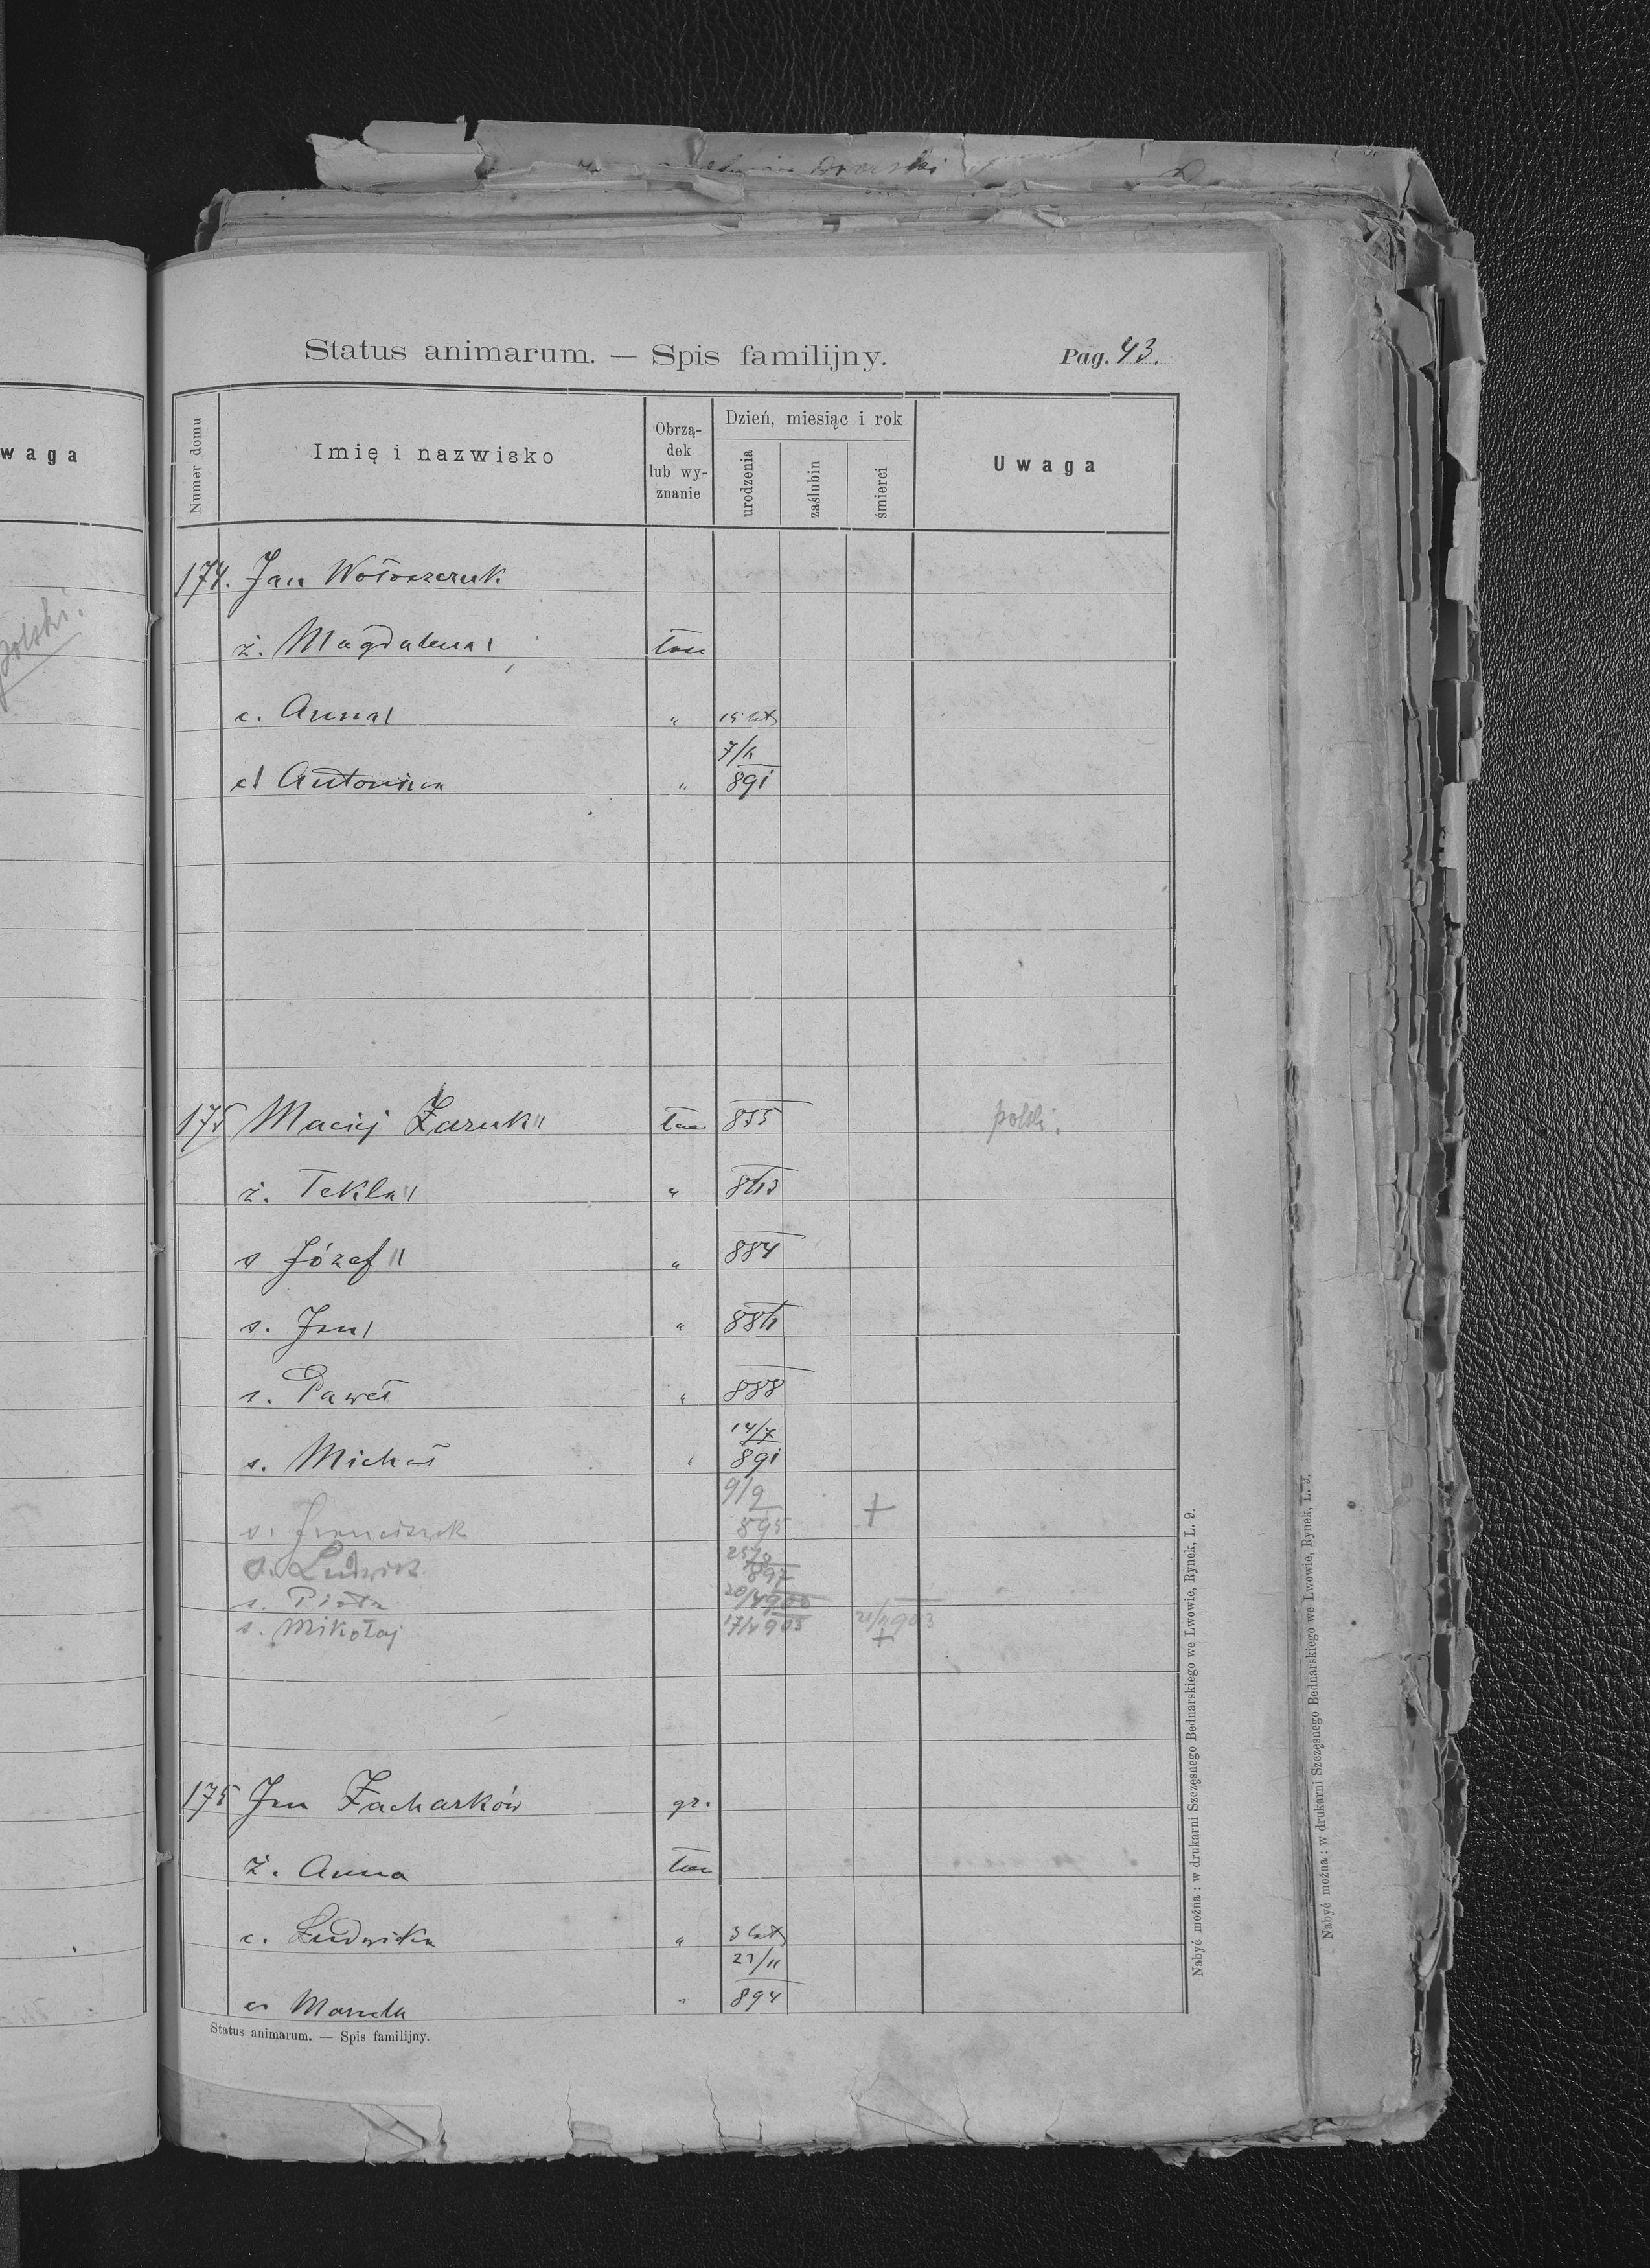 Dworski
waga
polski.
Status animarum. — Spis familijny. Pag. 43.
Numer domu
Imię i nazwisko
Obrzą-
dek
lub wy-
znanie
Dzień, miesiąc i rok
urodzenia
zaślubin
śmierci
Uwaga
174. Jan Wołoszczuk
ż. Magdalena łac
c. Anna " 15 lat
c Antonina " 891
175 Maciej Zazuk łac 855 polski.
ż. Tekla "
s Józef " 884
s. Jan "
s. Paweł " 888
s. Michał " 14/7 891
s. Franciszek 9/9 895 +
s. Ludwik 897
s. Piotr 900
s. Mikołaj 903 903 +
175 Jan Zacharków gr.
ż. Anna łac
c. Ludwika " 3 lat
c. " 21/11 894
Status animarum. — Spis familijny.
Nabyć można : w drukarni Szczęsnego Bednarskiego we Lwowie, Rynek, L. 9.
Nabyć można : w drukarni Szczęsnego Bednarskiego we Lwowie, Rynek, L. 9.